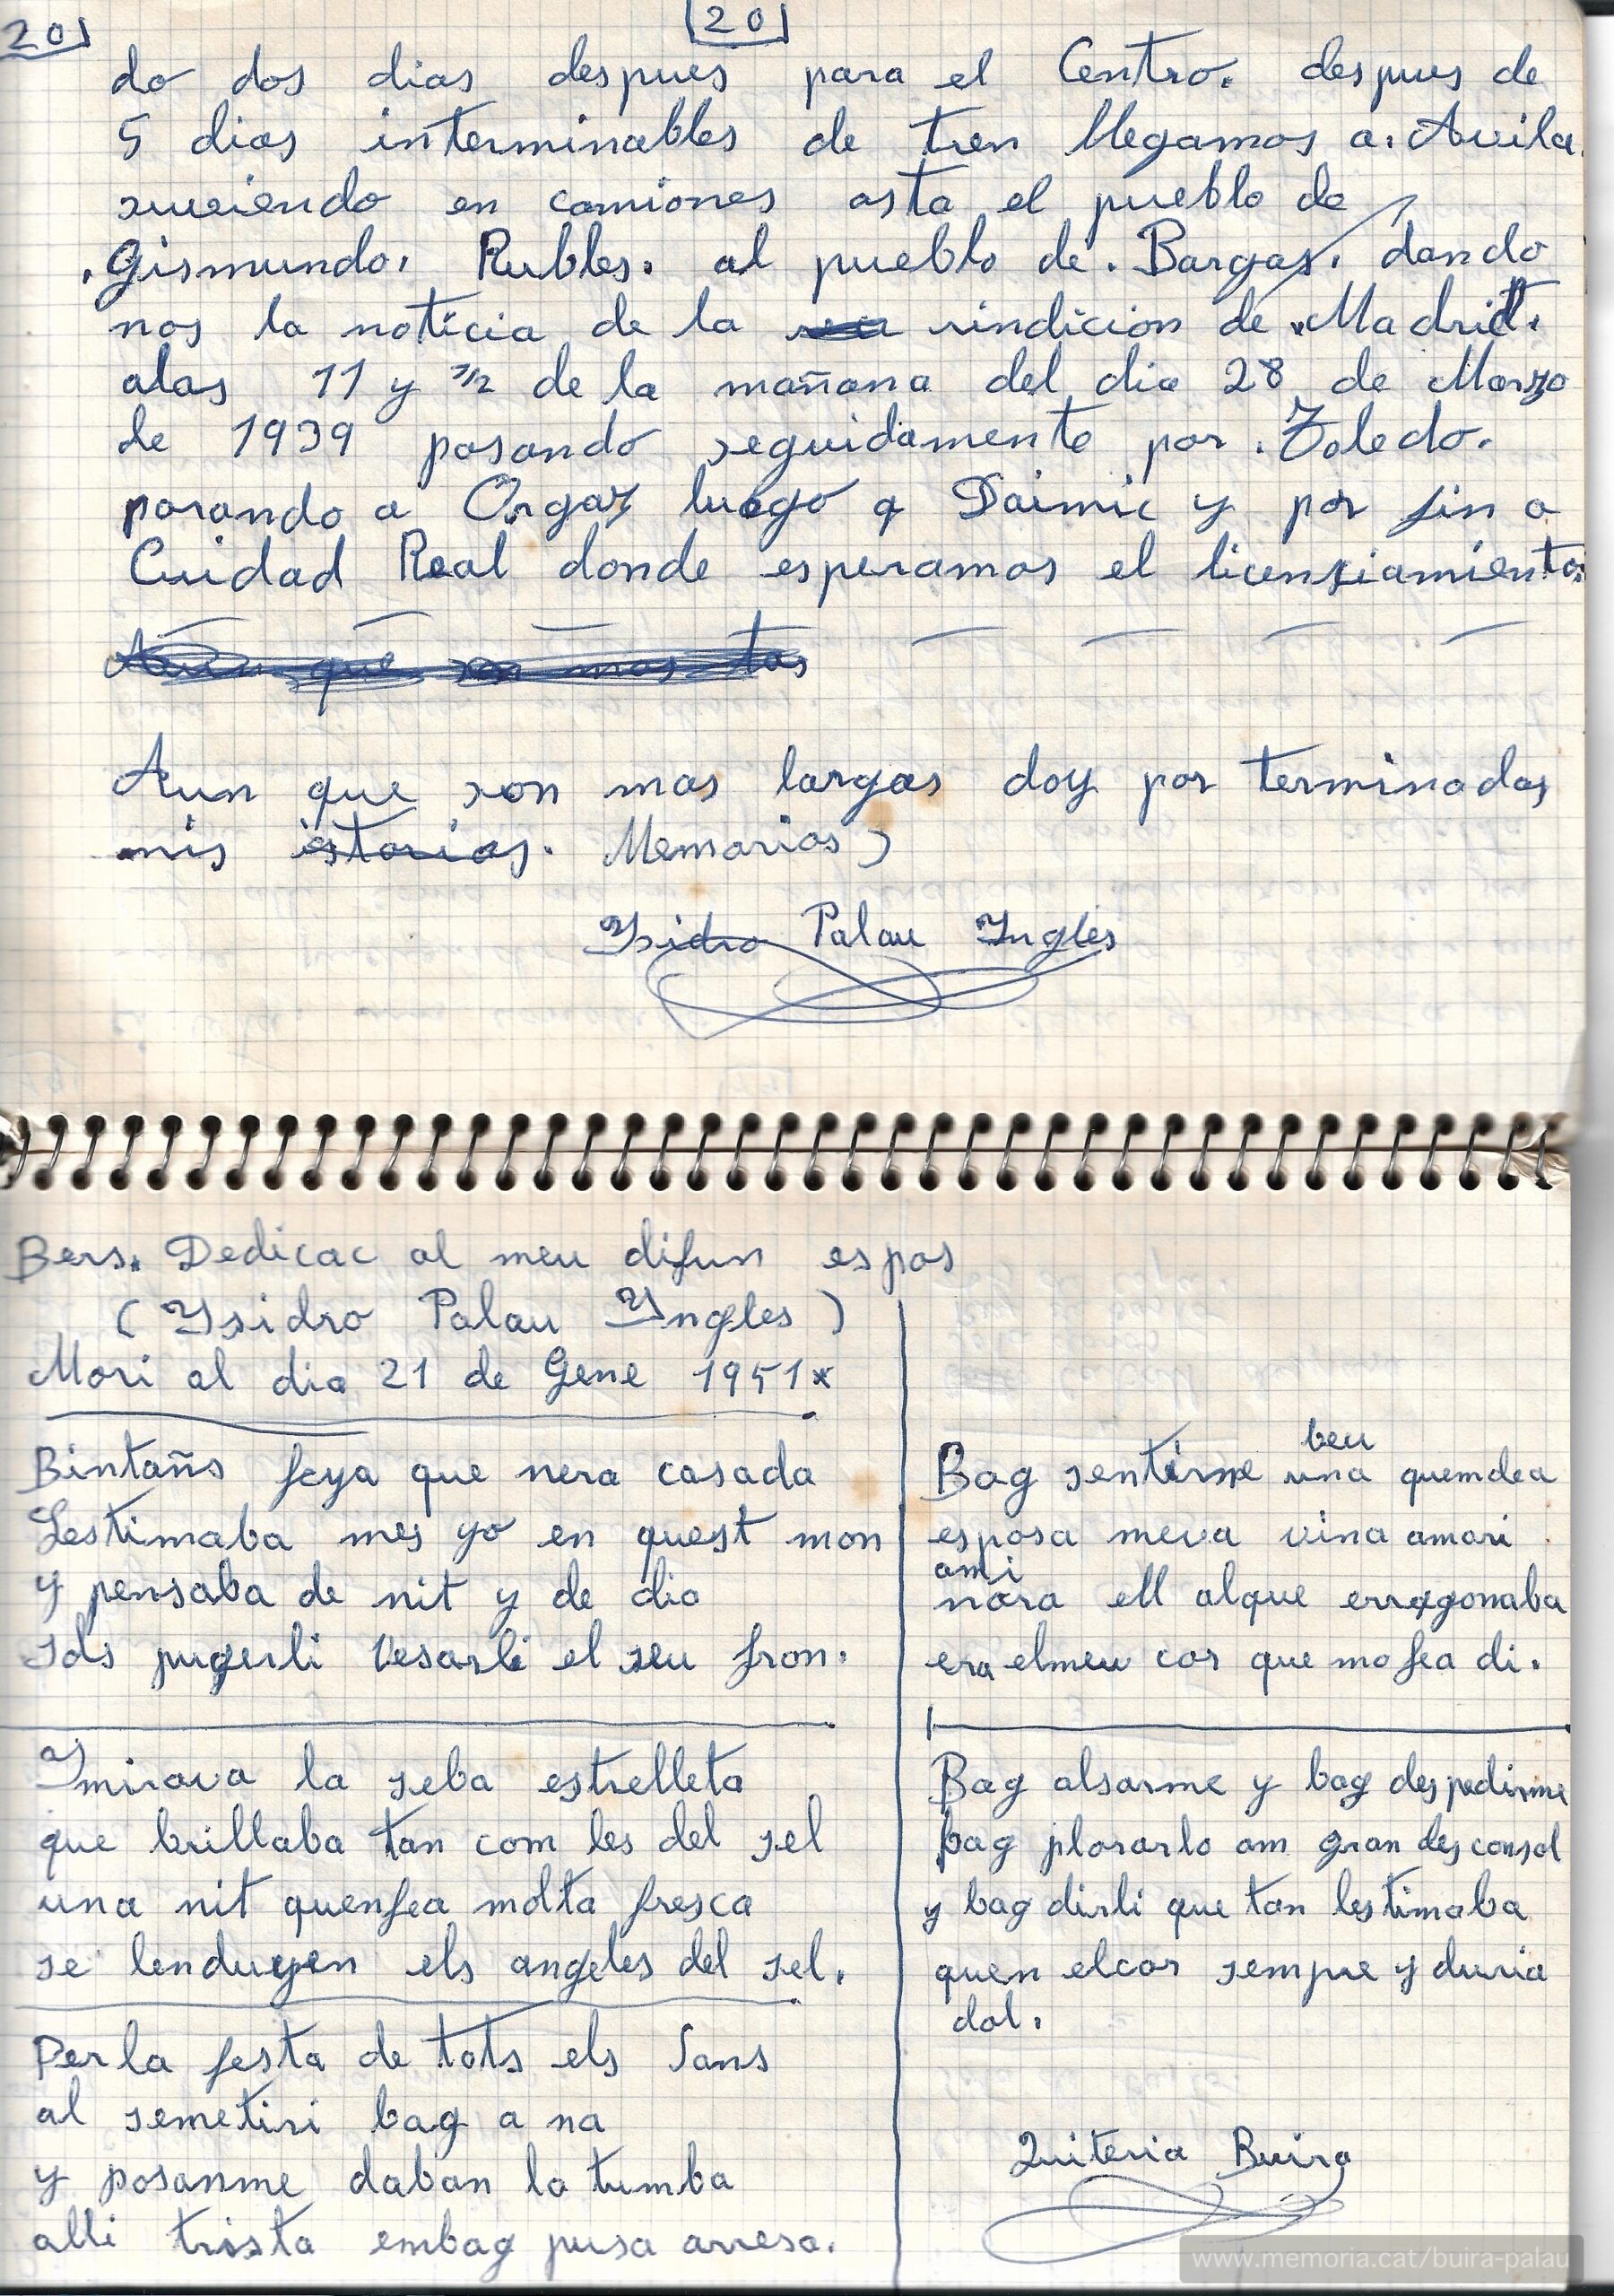 20
20
do dos dias despues para el Centro. despues de
5 dias interminables de tren llegamos a. Avila.
suviendo en camiones asta el pueblo de
. Gismundo. Rubles. al pueblo de. Bargas. dando
nos la noticia de la rindicion de. Madrit.
alas 11 y 1/2 de la mañana del dia 28 de Marzo
de 1939 pasando seguidamente por. Toledo.
parando a Orgaz luego a Daimic y por fin a
Cuidad Real donde esperamos el licensiamiento.
Aun que son mas tas
Aun que son mas largas doy por terminadas
mis istorias. Memorias)
Ysidro Palau Ingles
Bers. Dedicac al meu difun espos
(Ysidro Palau Yngles)
Mori al dia 21 de Gene 1951*
Bintañs feya que nera casada
Lestimaba mes yo en quest mon
y pensaba de nit y de dia
sols pugerli besarli el seu fron.
Ymirava la seba estrelleta
que brillaba tan com les del sel
una nit quenfea molta fresca
se lenduyen els angeles del sel.
Per la festa de tots els Sans
al semetiri bag a na
y posanme daban la tumba
alli trista embag pusa arresa.
beu
Bag sentirme una quemdea
esposa meva vina amori
ami
nora ell alque erragonaba
era elmeu cor que mo fea di.
Bag alsarme y bag despedirme
bag plorarlo am gran desconsol
y bag dirli que tan lestimaba
quen elcor sempre y duria
dol.
Quiteria Buira
www.memoria.cat/buira-palau